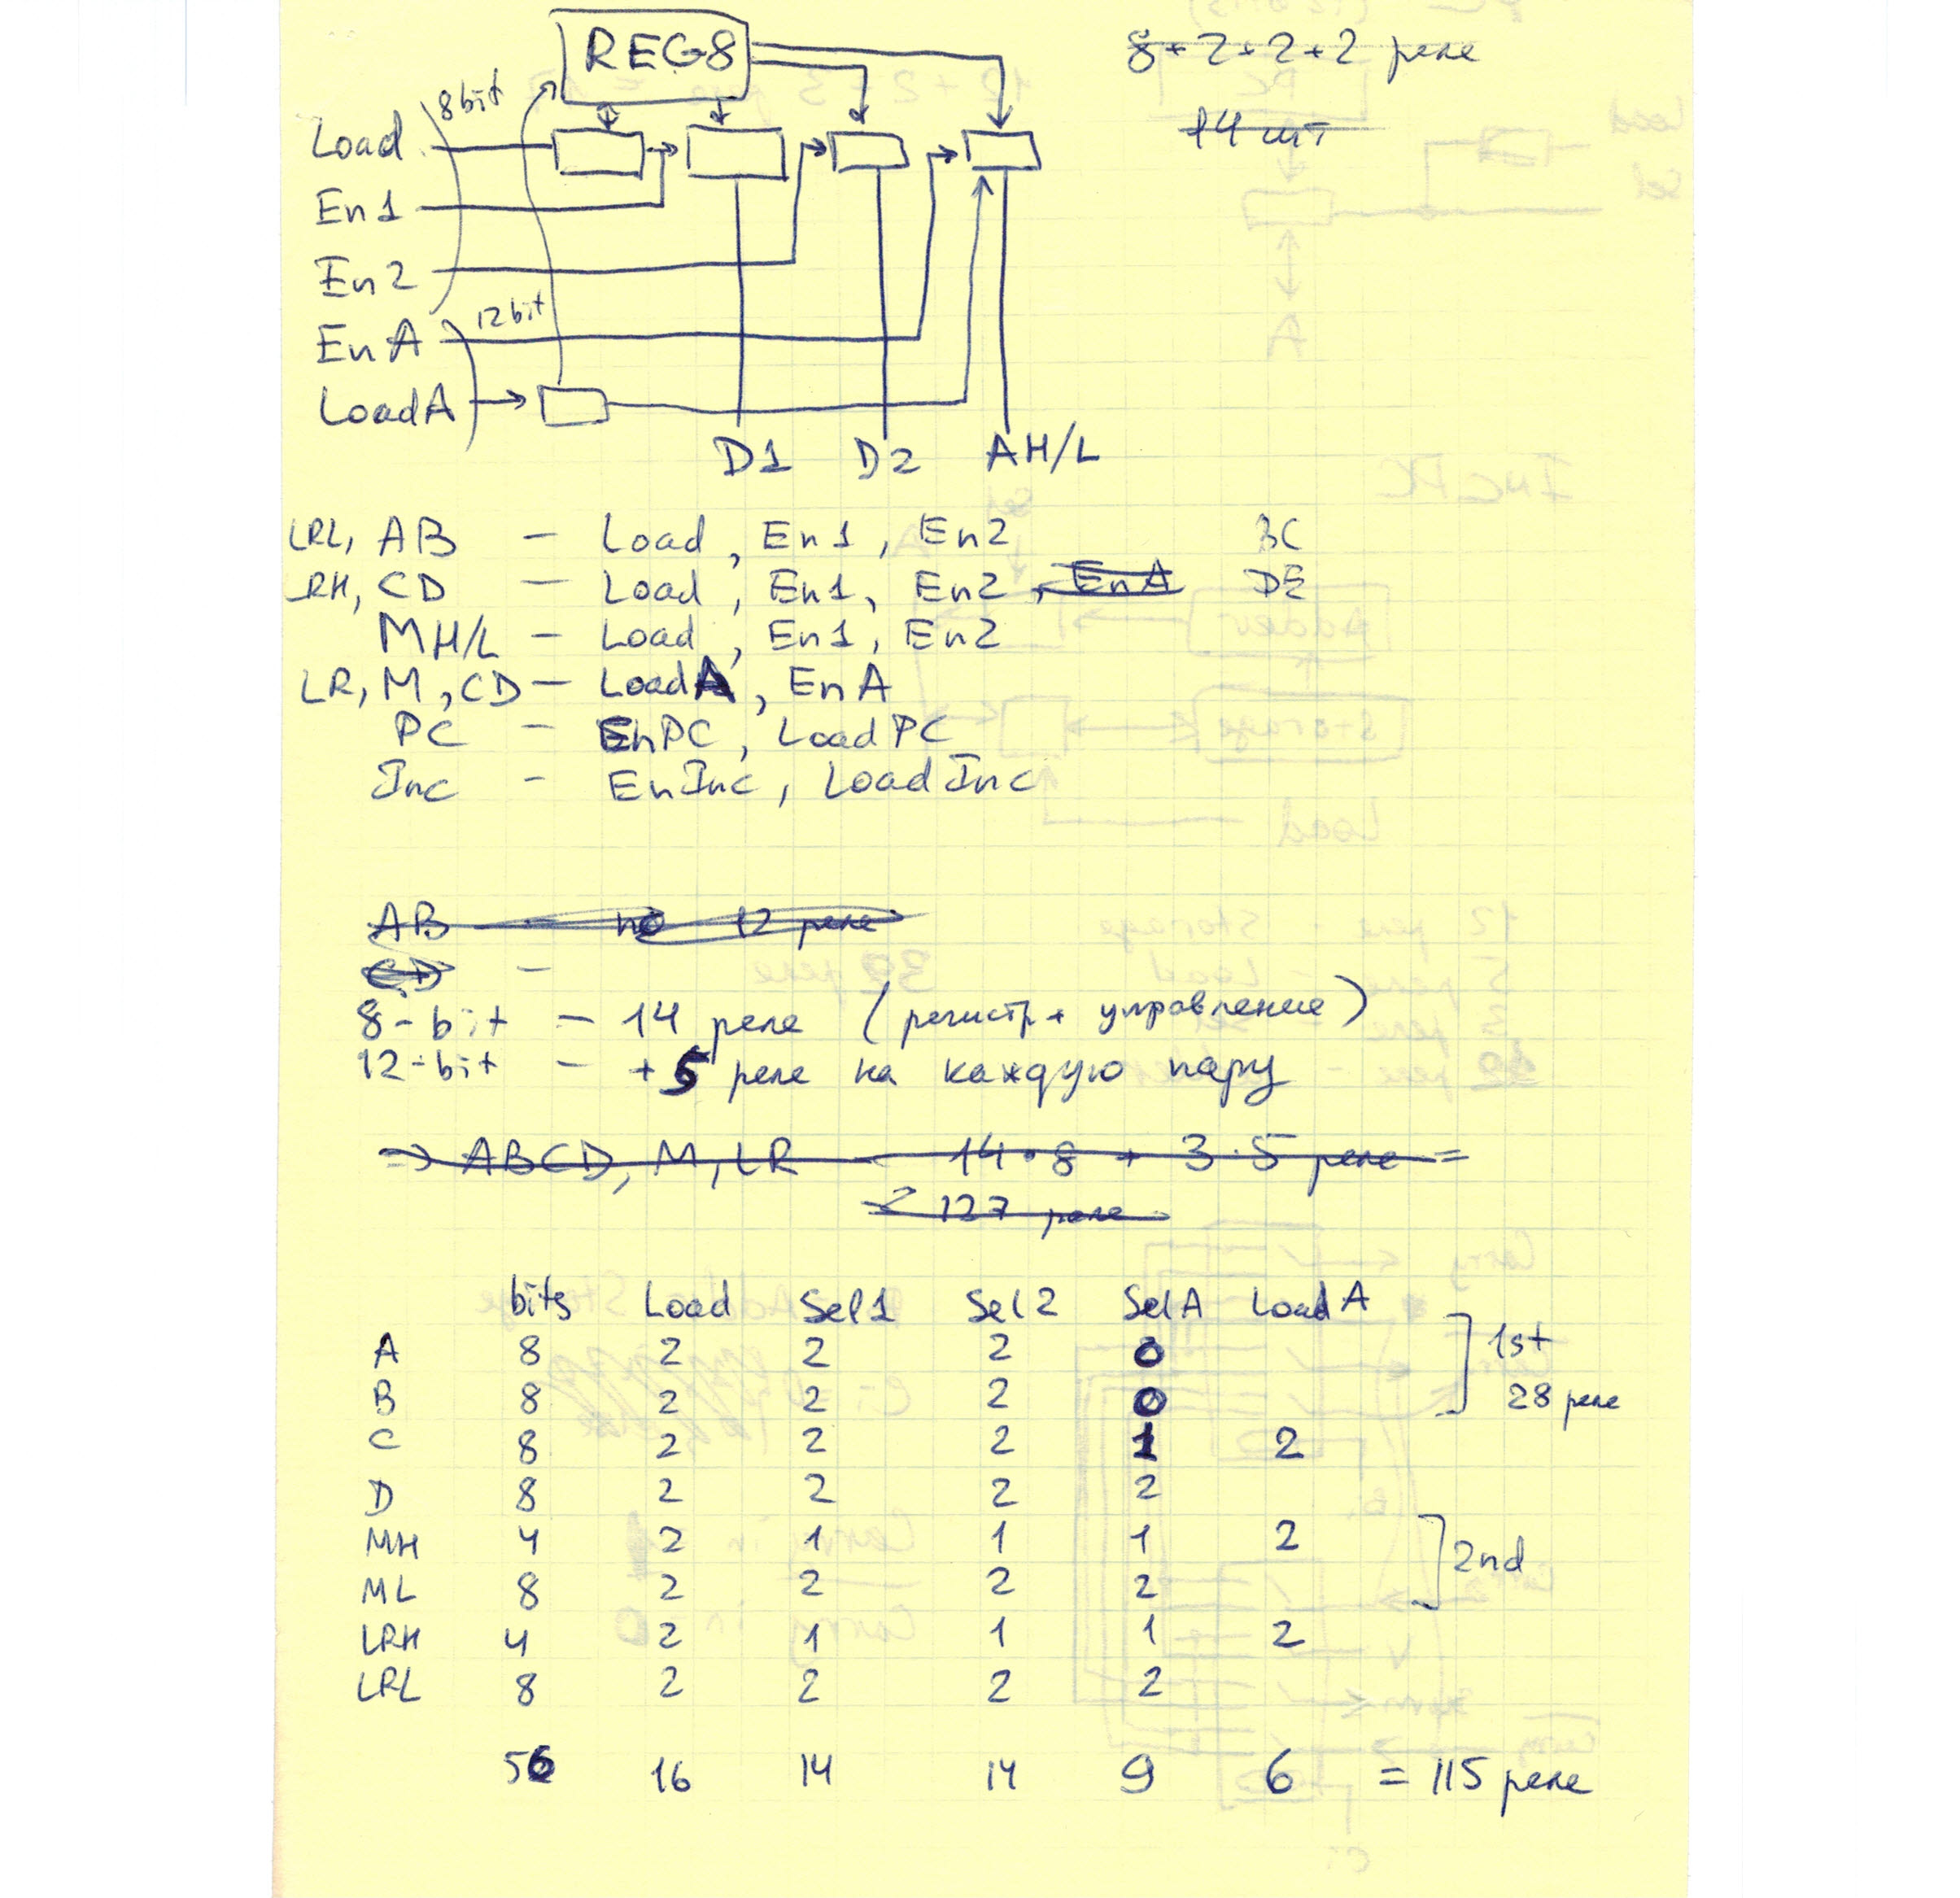 REG8
8+2+2+2 реле
14 шт
8bit
Load
En1
En2
12bit
EnA
LoadA
D1 D2 AH/L
LRL, AB - Load, En1, En2 BC
LRH, CD - Load, En1, En2, EnA DE
MH/L - Load, En1, En2
LR, M, CD - LoadA, EnA
PC - EnPC, LoadPC
Inc - EnInc, LoadInc
AB - по 12 реле
CD -
8-bit - 14 реле (регистр + управление)
12-bit - +5 реле на каждую пару
=> ABCD, M, LR - 14·8 + 3·5 реле =
= 127 реле
bits Load Sel1 Sel2 SelA LoadA
A 8 2 2 2 0
B 8 2 2 2 0
1st
28 реле
C 8 2 2 2 1 2
D 8 2 2 2 2
MH 4 2 1 1 1 2
ML 8 2 2 2 2
2nd
LRH 4 2 1 1 1 2
LRL 8 2 2 2 2
56 16 14 14 9 6 = 115 реле